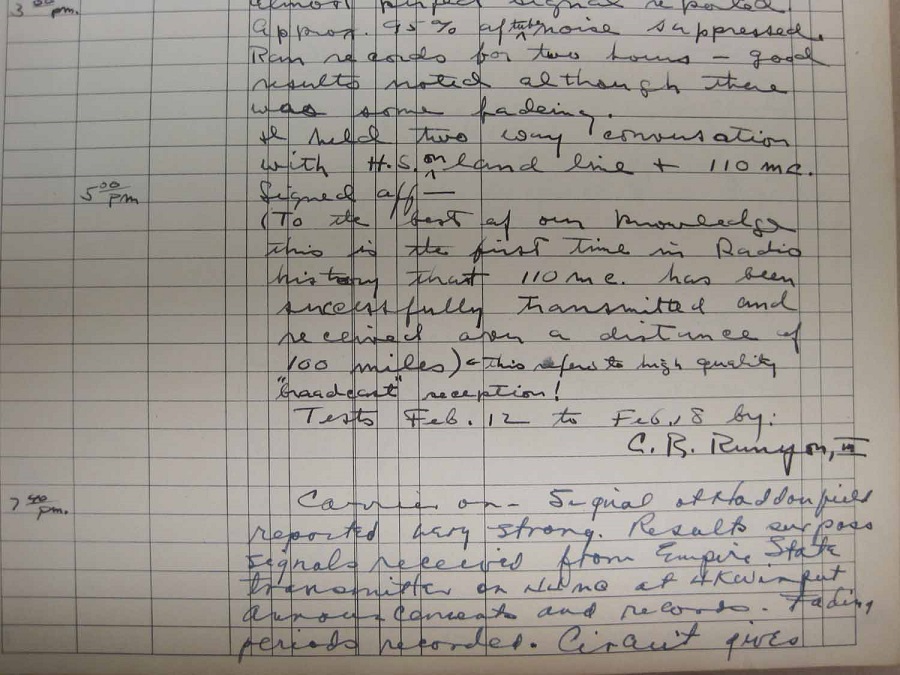 3 00 pm. almost perfect signal reported.
approx. 95% of tube noise suppressed.
Ran records for two hours - good
results noted although there
was some fadeing.
held two way conversation
with H.S. on land line + 110 mc.
5 00 pm Signed off —
(To the best of our knowledge
this is the first time in Radio
history that 110 mc. has been
sucessfully transmitted and
received over a distance of
100 miles) this refers to high quality
"broadcast" reception!
Tests Feb. 12 to Feb. 18 by:
C. R. Runyon, III
7 40 pm. Carrier on - Signal at Haddonfield
reported very strong. Results surpass
signals received from Empire State
transmitter on at 4KW input
announcements and records. Fading
periods recorded. Circuit gives